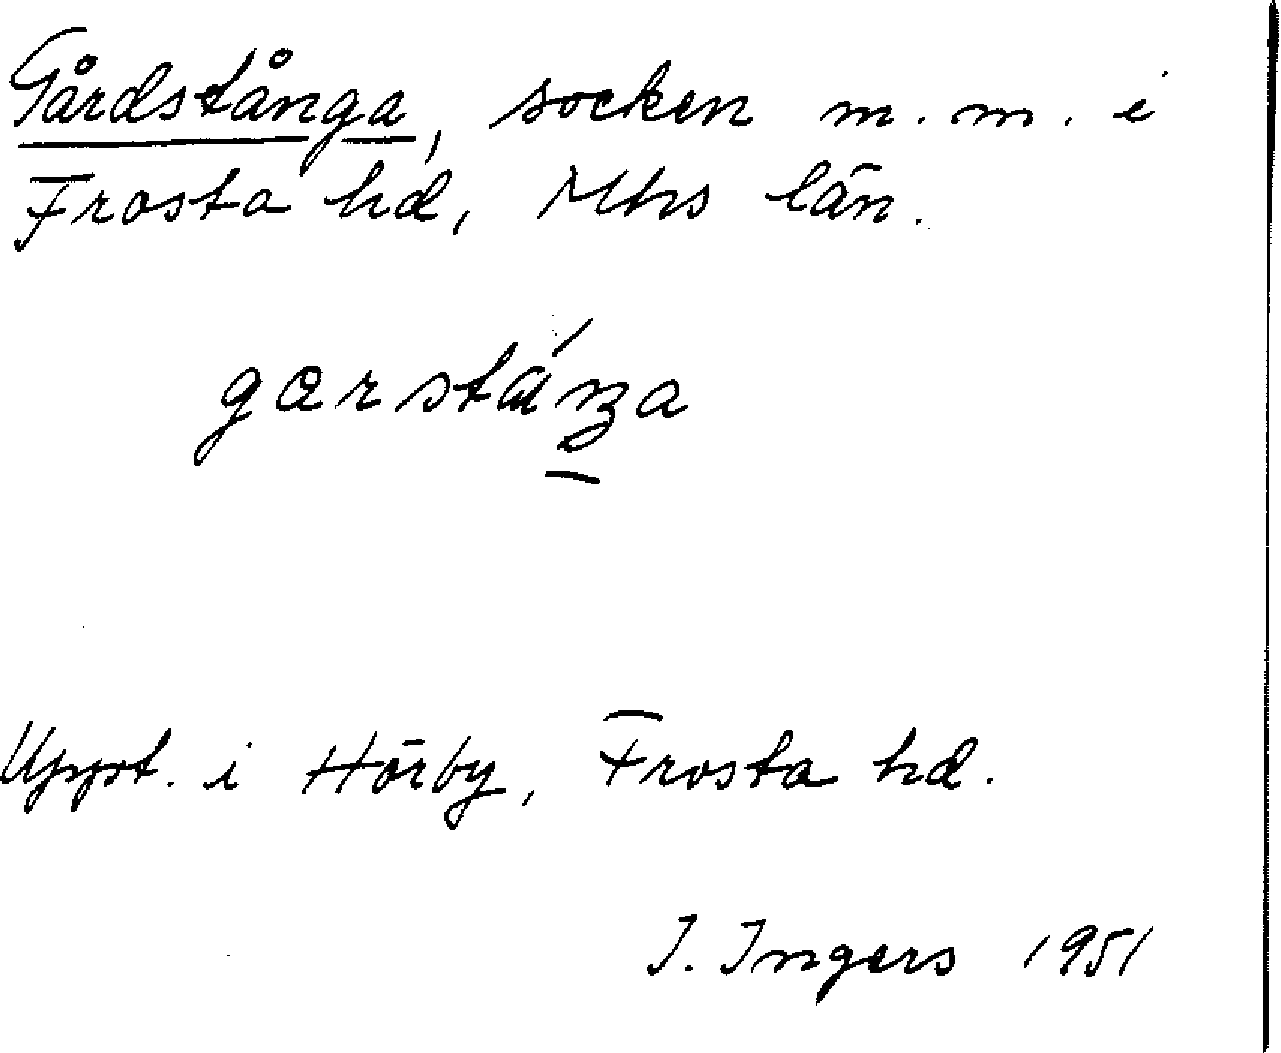 Gårdstånga, socken m. m. i
Frosta hd, Mhs län.
Uppt. i Hörby, Frosta hd.
I. Ingers 1951